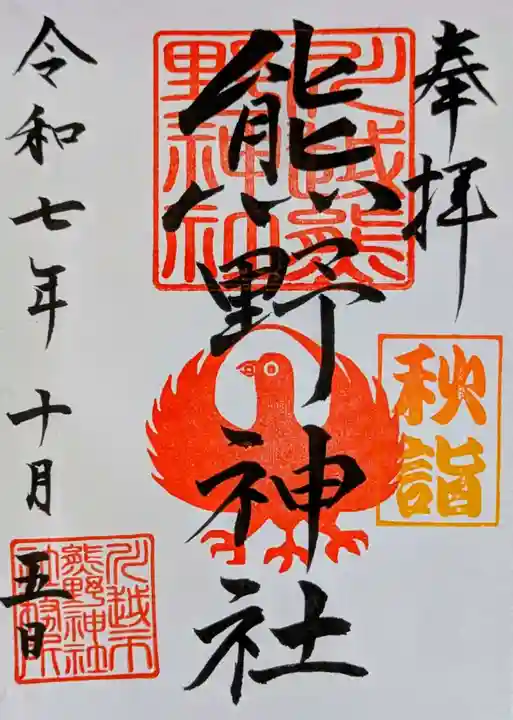 奉拝
秋詣
川越熊
野神社
熊野神社
令和七年十月
五日
川越市
熊野神社
社務所